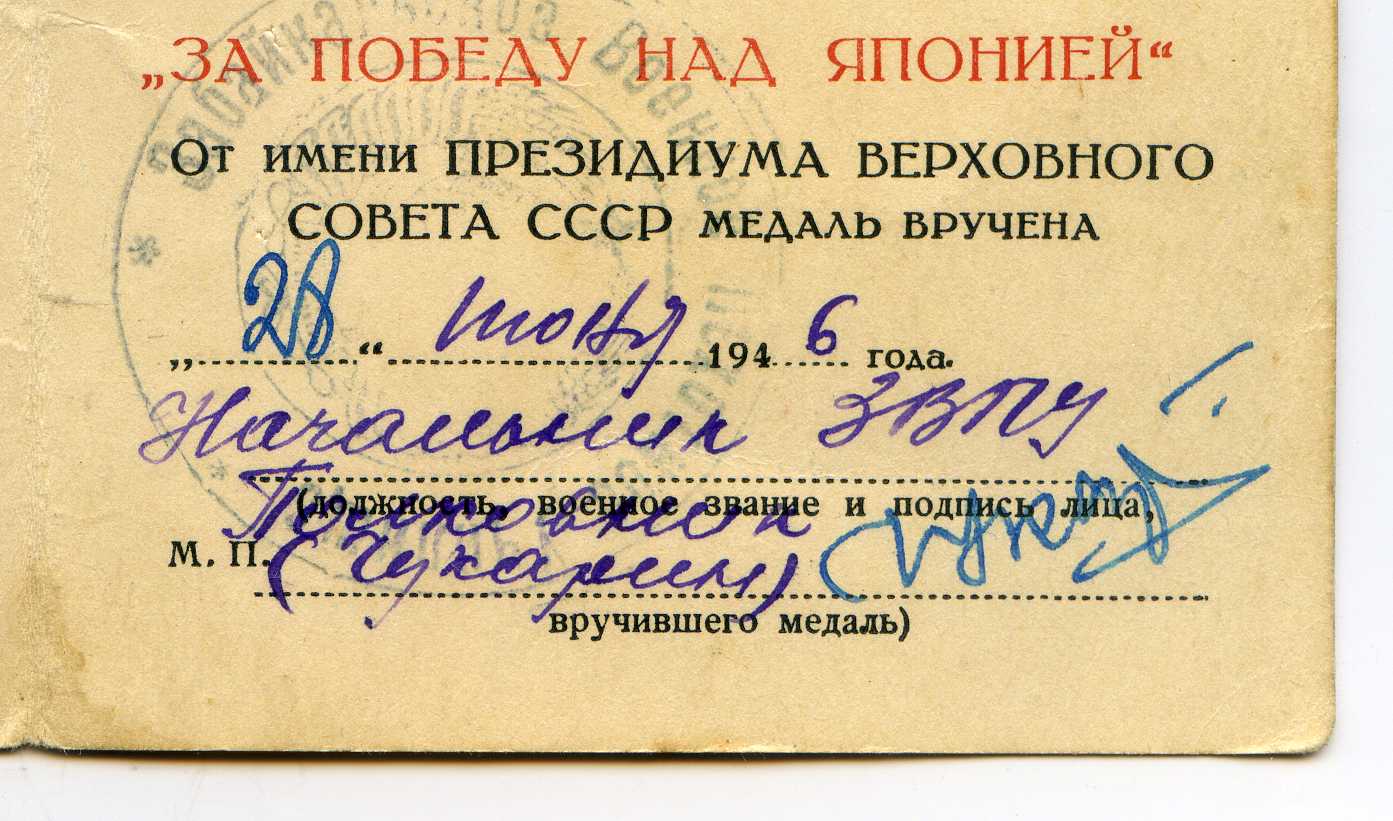 „ЗА ПОБЕДУ НАД ЯПОНИЕЙ“
От имени ПРЕЗИДИУМА ВЕРХОВНОГО
СОВЕТА СССР МЕДАЛЬ ВРУЧЕНА
„28“ июня 1946 года.
Начальник ЗВПУ
(должность, военное звание и подпись лица,
Полковник
М. П. (Чукарин)
вручившего медаль)